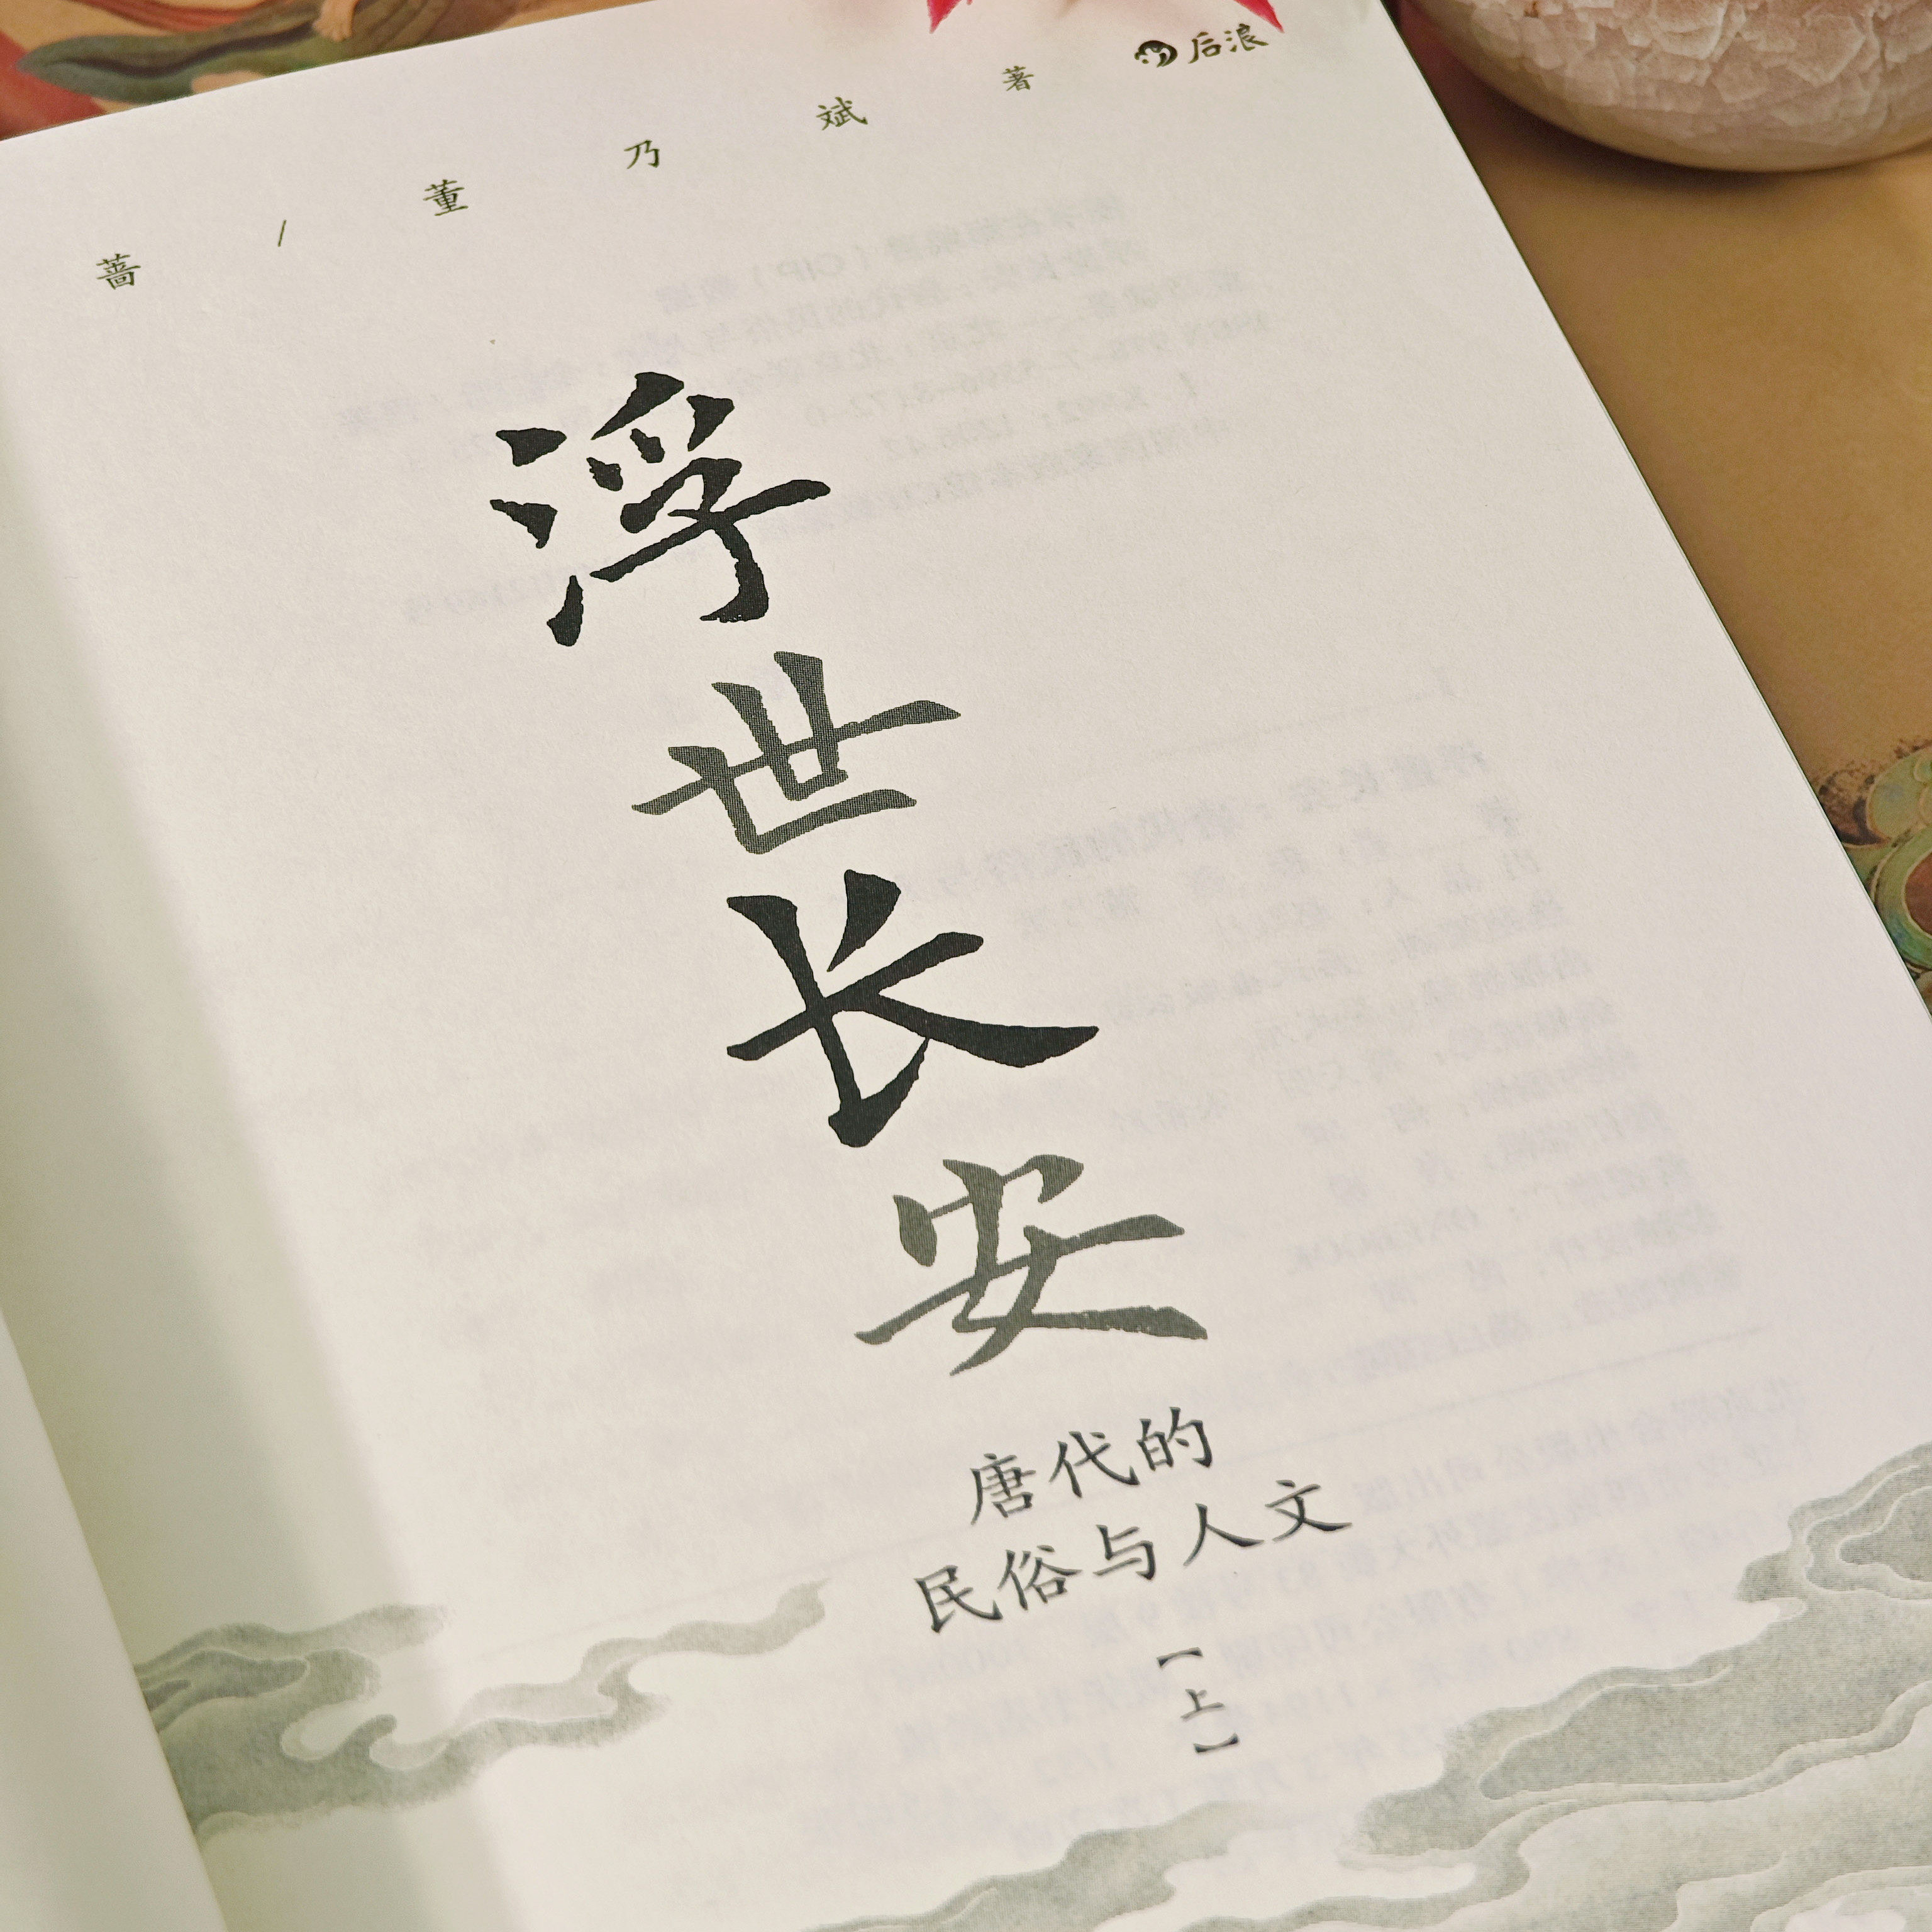 后浪
蔷 / 董乃斌 著
浮世长安
唐代的
民俗与人文
【上】